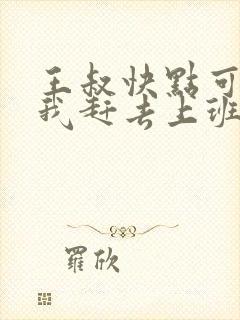 王叔快點可
我赶去上班
羅欣